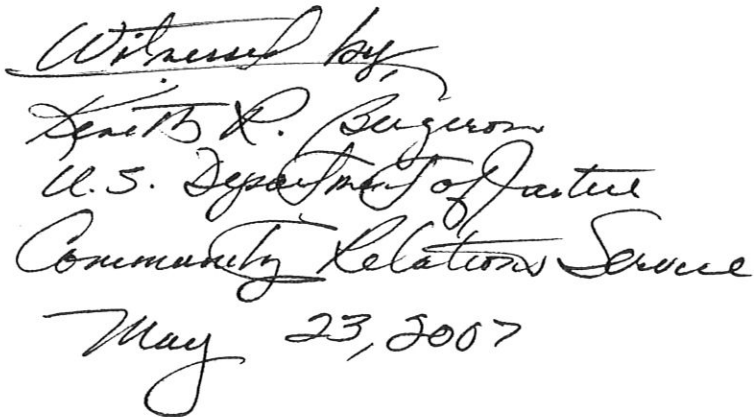 Witnessed by,
Kenneth R. Bergeron
U.S. Department of Justice
Community Relations Service
May 23, 2007